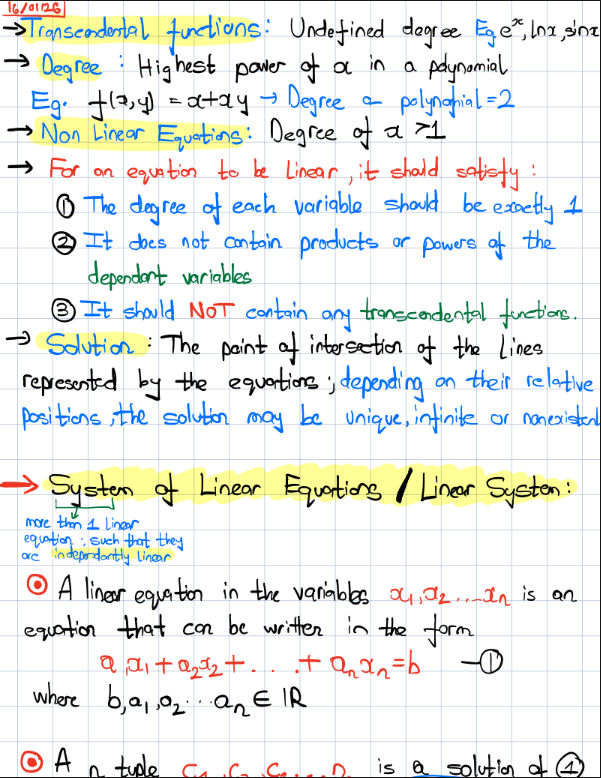 16/01/26
→ Transcendental functions: Undefined degree Eg eˣ, lnx, sinx
→ Degree : Highest power of x in a polynomial
Eg. f(x,y) = x+xy → Degree a polynomial = 2
→ Non Linear Equations: Degree of x >1
→ For an equation to be linear, it should satisfy :
① The degree of each variable should be exactly 1
② It does not contain products or powers of the
dependant variables
③ It should NOT contain any transcendental functions.
→ Solution : The point of intersection of the lines
represented by the equations ; depending on their relative
positions, the solution may be unique, infinite or nonexistent
→ System of Linear Equations / Linear System :
more than 1 linear
equation ; such that they
are independantly linear
A linear equation in the variables x₁, x₂ .... xₙ is an
equation that can be written in the form
a₁x₁ + a₂x₂ + . . . . + aₙxₙ = b —①
where b, a₁, a₂ ... aₙ ∈ IR
A n tuple is a solution of ①